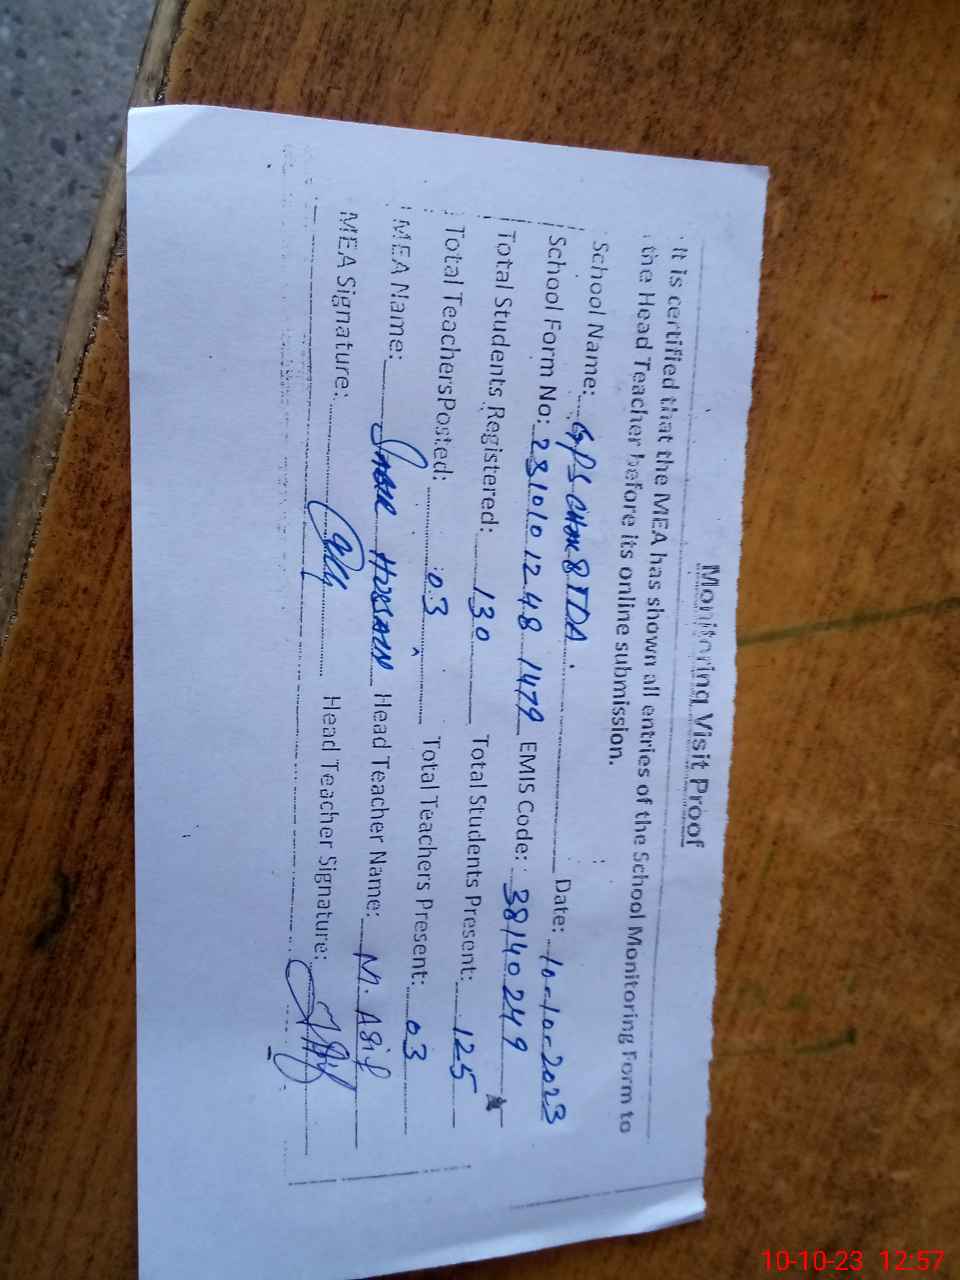 Monitoring Visit Proof
It is certified that the MEA has shown all entries of the School Monitoring Form to
the Head Teacher before its online submission.
School Name: GPS CHAK 8 TDA. Date: 10-10-2023
School Form No: 2310101248 1479 EMIS Code: 38140249
Total Students Registered: 130 Total Students Present: 125
Total TeachersPosted: 03 Total Teachers Present: 03
MEA Name: HUSSAIN Head Teacher Name: M. Asif
MEA Signature: Head Teacher Signature:
10-10-23 12:57